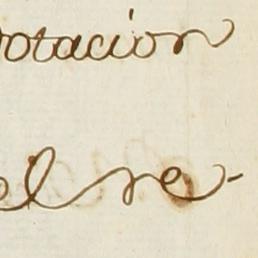 otacion
el re-